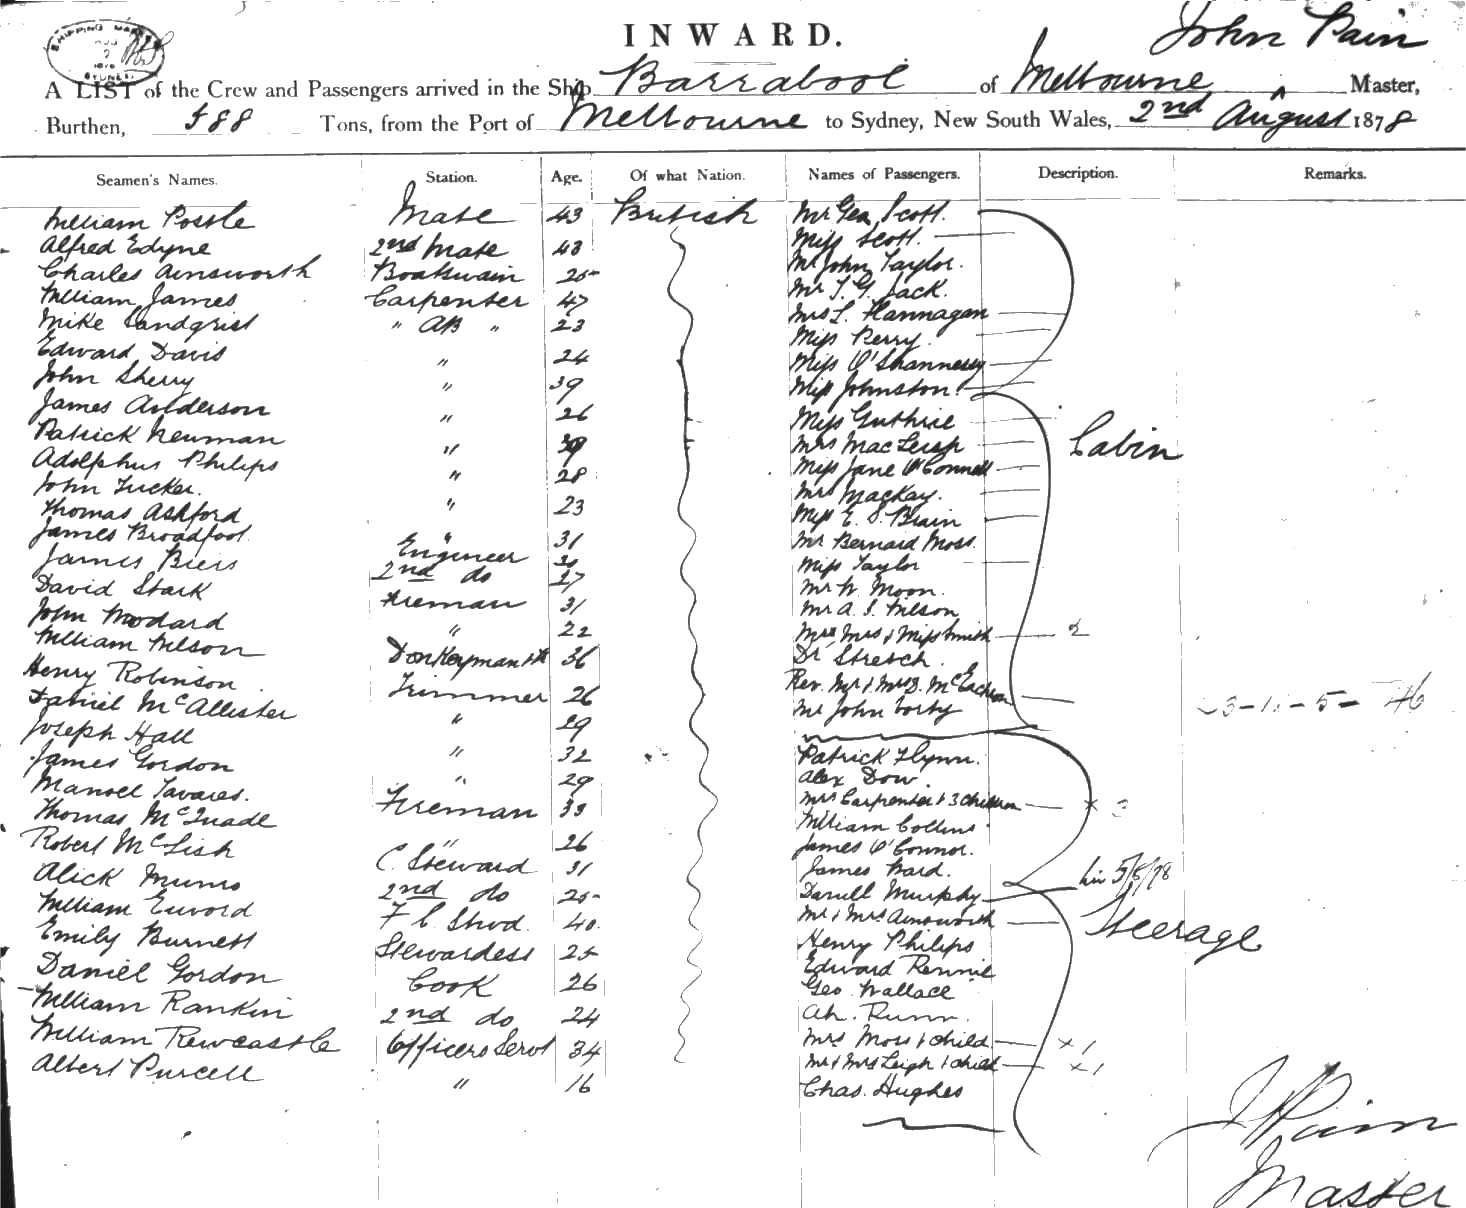 INWARD.
John Pain
SHIPPING MASTER
SYDNEY
A LIST of the Crew and Passengers arrived in the Ship Barrabool of Melbourne Master,
Burthen, 588 Tons, from the Port of Melbourne to Sydney, New South Wales, 2nd August 1878
Seamen's Names. Station. Age. Of what Nation. Names of Passengers. Description. Remarks.
William Postle Mate 43 British Mr Geo Scott.
Alfred Edyne 2nd Mate 43 Miss Scott.
Charles Ainsworth Boatswain 25 Mr John Taylor.
William James Carpenter 47 Mr T. G. Jack.
Mike Landgrist " AB " 23 Mrs L. Flannagan
Edward Davis " 24 Miss Perry
John Sherry " 39 Miss O'Shannessy
James Anderson " 26 Miss Johnston
Patrick Newman " Miss Guthrie
Adolphus Philips " 28 Mrs MacLeish Cabin
John Tucker. " 23 Miss Jane O'Connell
Thomas Ashford " 31 Mrs Mackay.
James Broadfoot. Engineer Miss E. S. Brain
James Biers 2nd do 27 Mr Bernard Moss.
David Stark Fireman 31 Miss Taylor
John Woodard " 22 Mr W. Moon.
William Wilson Donkeyman 36 Mr A. S. Wilson
Henry Robinson Trimmer 26 Mr Mrs & Miss Smith 2
Daniel McAllister " 29 Dr Stretch.
Joseph Hall " 32 Rev. Mr & Mrs D. McEachran 3-1-5- 46
James Gordon " 29 Mr John Corby
Manoel Tavares. Fireman 33 Patrick Flynn.
Thomas McQuade " 26 Alex Dow
Robert McLish C. Steward 31 Mrs Carpenter & 3 children x 3
Alick Munro 2nd do 25 William Collins
William Euvord F C Stwd. 40 James O'Connor.
Emily Burnett Stewardess 25 James Ward.
Daniel Gordon Cook 26 Daniell Murphy 5/8/78
William Rankin 2nd do 24 Mr & Mrs Ainsworth Steerage
William Rewcastle Officers Servt 34 Henry Philips
Albert Purcell " 16 Edward Rennie
Geo. Wallace
Ah. Runn.
Mrs Moss & child x 1
Mr & Mrs Leigh & child x 1
Chas. Hughes
J Pain
Master